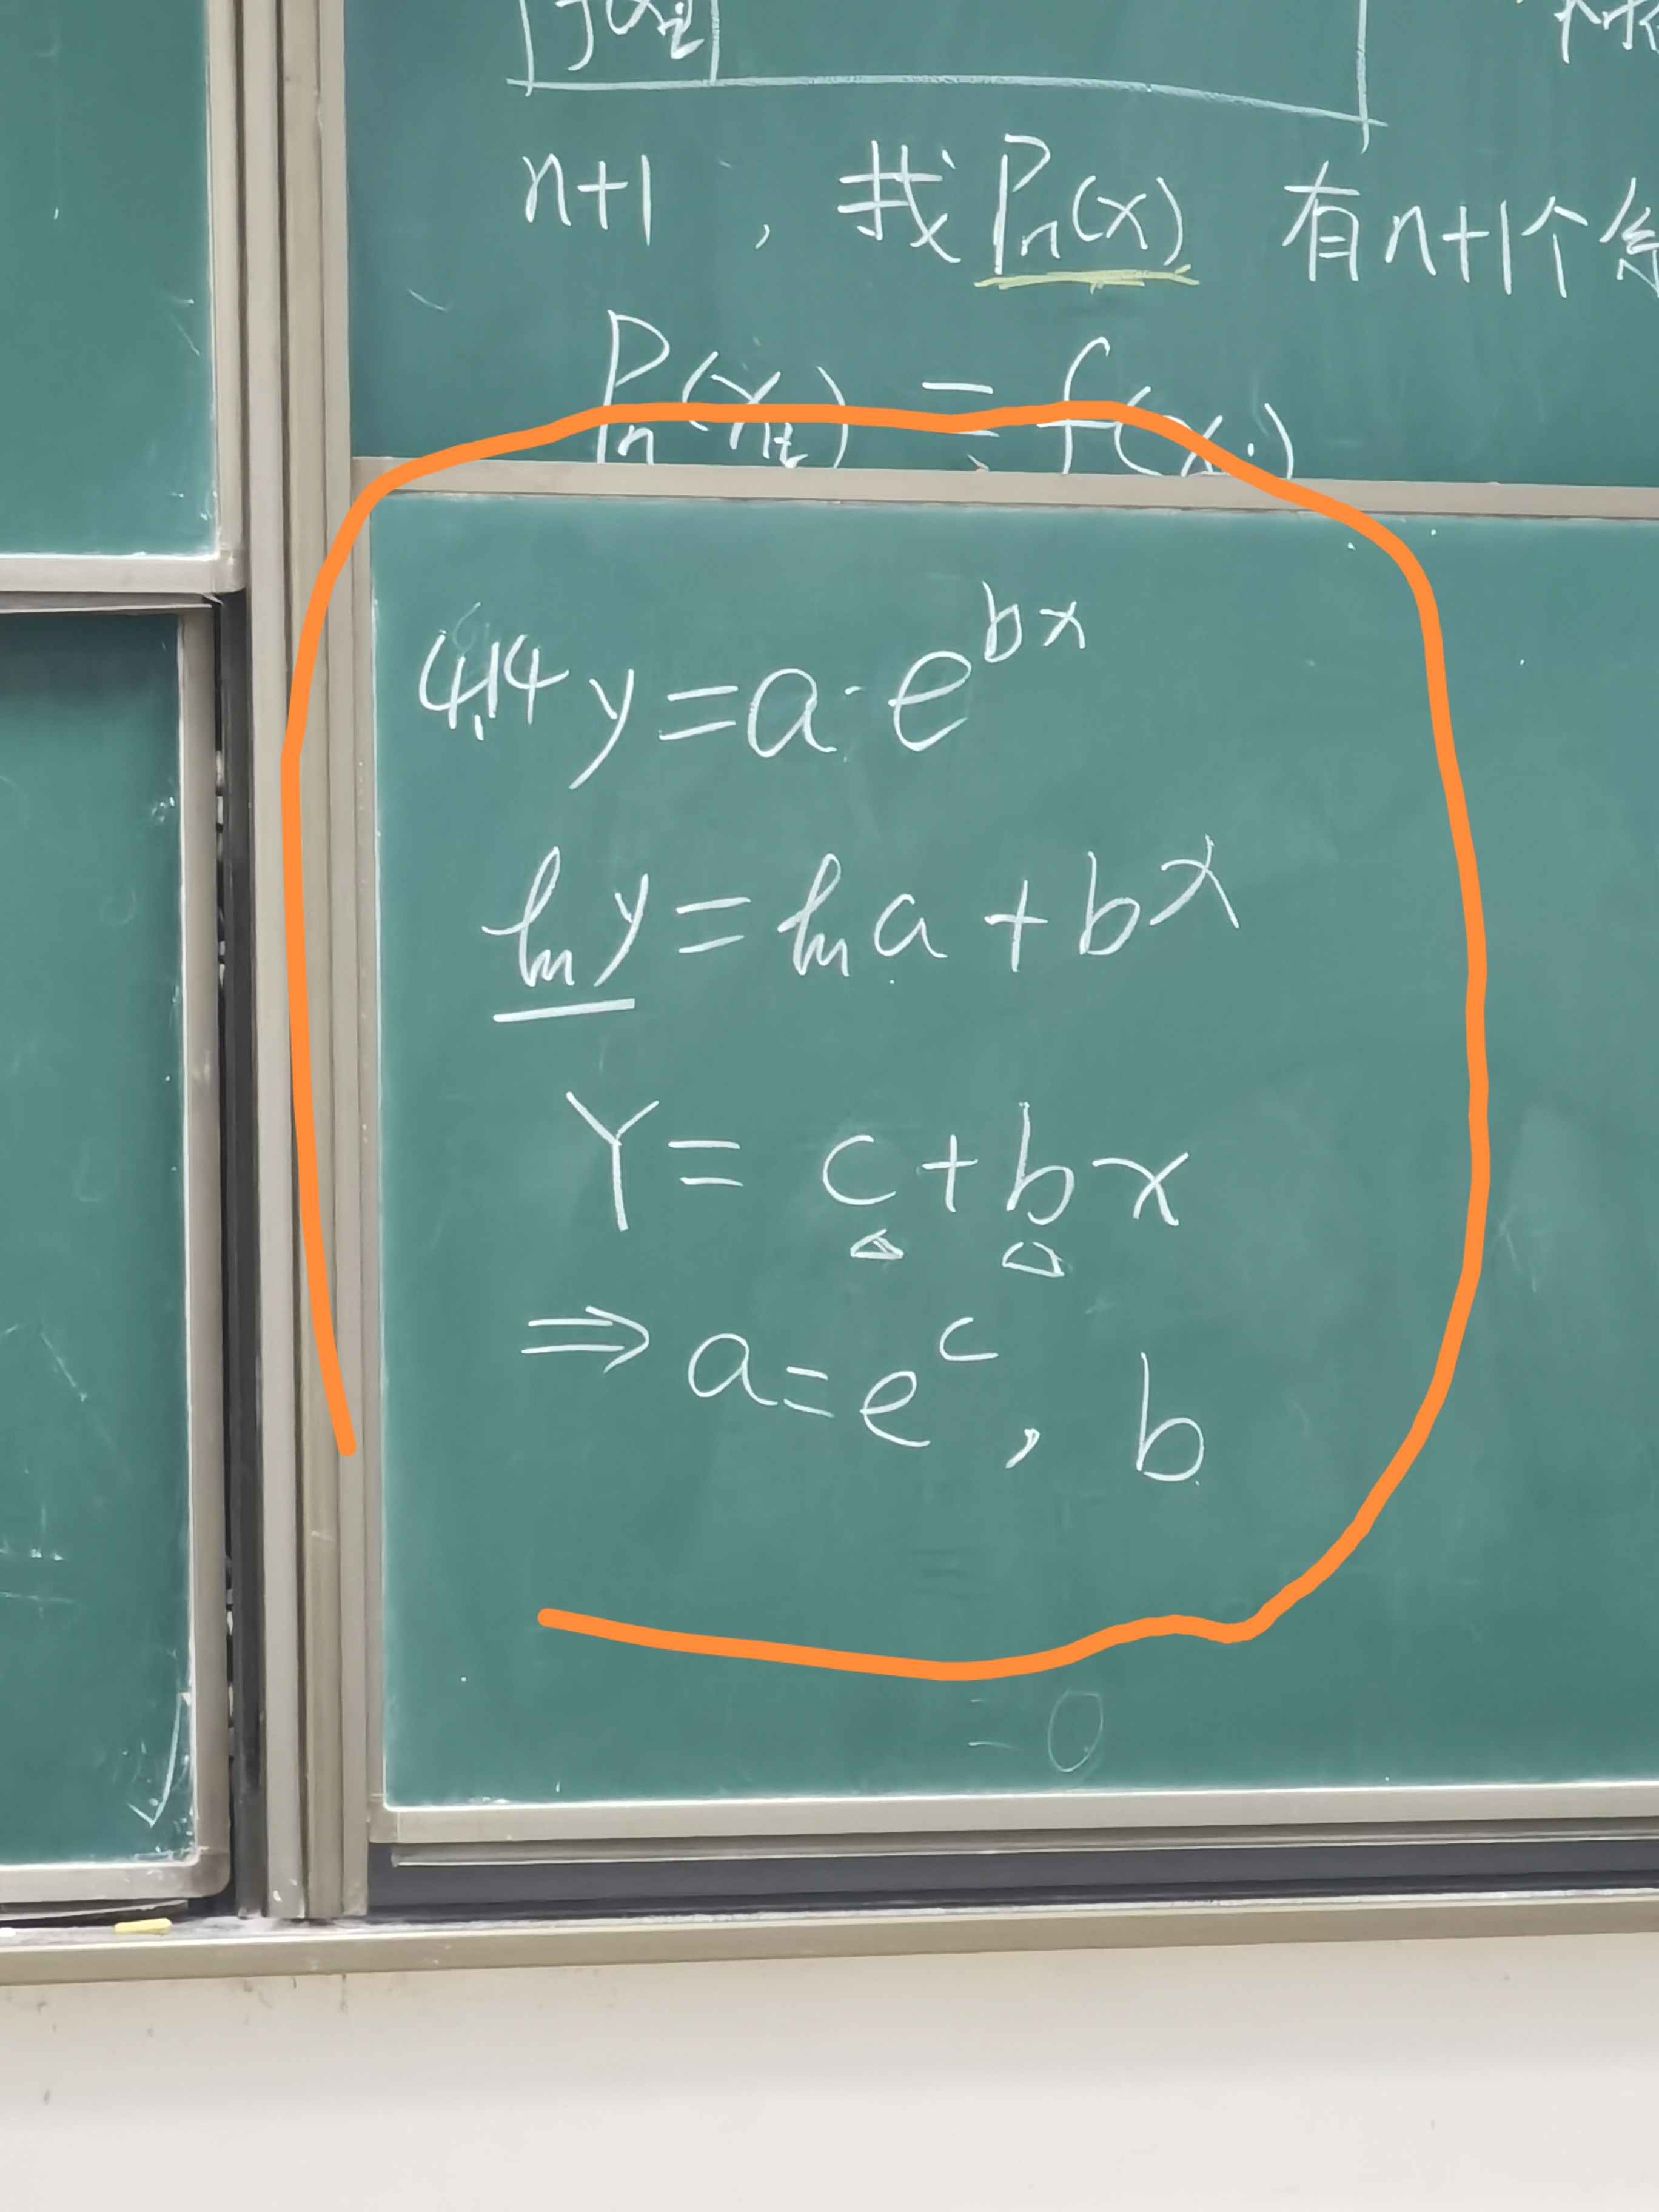 n+1 , 找 Pn(x) 有n+1个
Pn(xi) = f(xi)
4.14 y = a·e^{bx}
ln y = ln a + bx
Y = c + bx
⇒ a = e^c , b
= 0